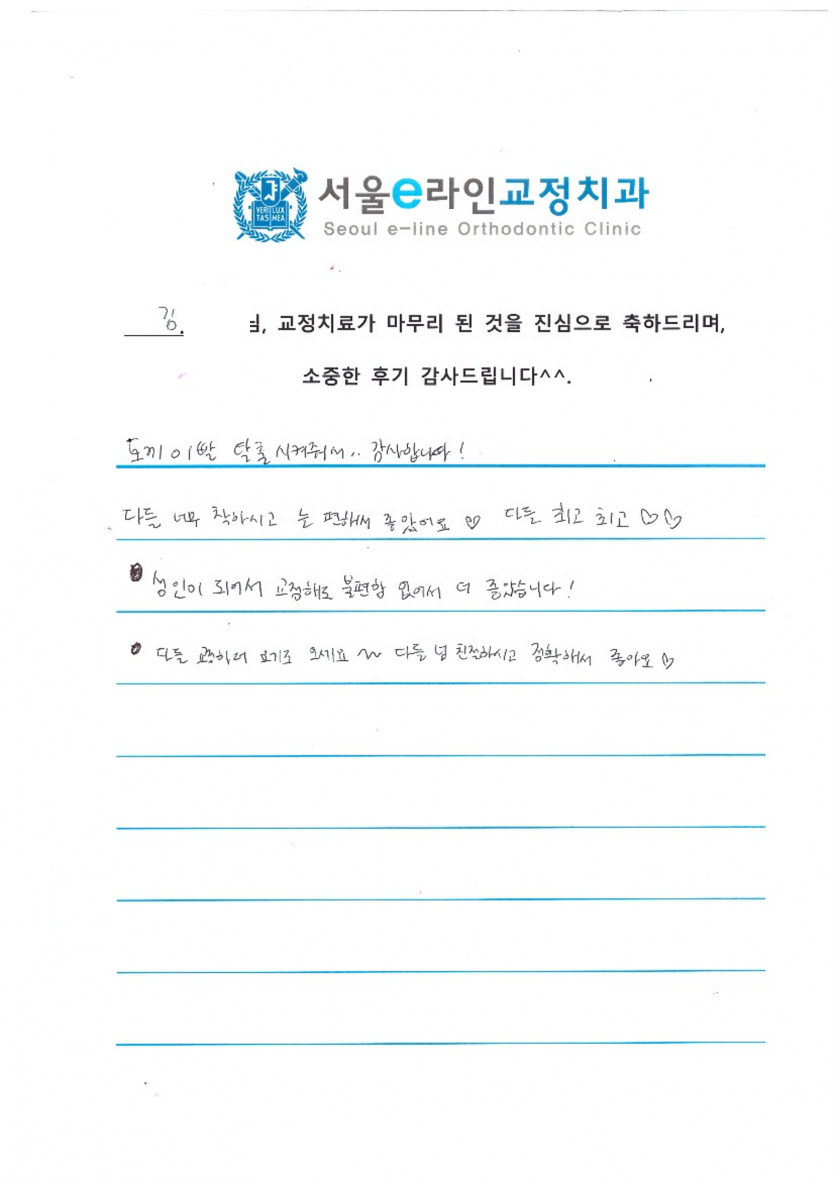 VERI LUX
TAS MEA
서울e라인교정치과
Seoul e-line Orthodontic Clinic
김. 님, 교정치료가 마무리 된 것을 진심으로 축하드리며,
소중한 후기 감사드립니다^^.
토끼이빨 탈출시켜줘서.. 감사합니다!
다들 너무 착하시고 늘 편해서 좋았어요♡ 다들 최고 최고♡♡
성인이 되어서 교정해도 불편함 없어서 더 좋았습니다!
다들 오세요~ 다들 넘 친절하시고 정확해서 좋아요♡